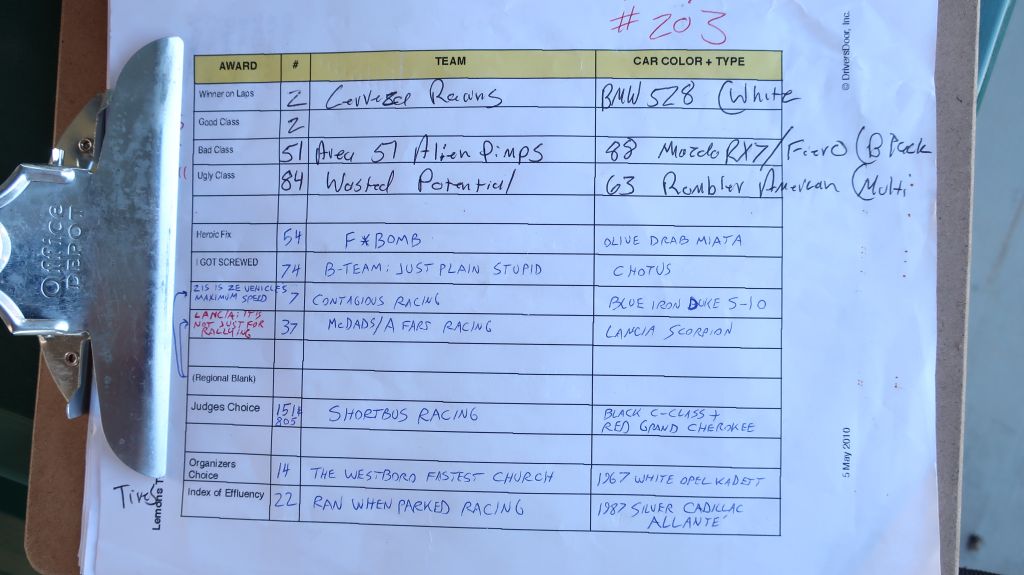 # 203
AWARD # TEAM CAR COLOR + TYPE
Winner on Laps 2 Cerveza Racing BMW 528 (White
Good Class 2
Bad Class 51 Area 51 Alien Pimps 88 Mazda RX7/Fiero (Black
Ugly Class 84 Wasted Potential 63 Rambler American (Multi
Heroic Fix 54 F*BOMB OLIVE DRAB MIATA
I GOT SCREWED 74 B-TEAM: JUST PLAIN STUPID CHOTUS
ZIS IS ZE VEHICLES
MAXIMUM SPEED 7 CONTAGIOUS RACING BLUE IRON DUKE S-10
LANCIA: IT'S
NOT JUST FOR
RALLYING 37 McDADS/A FARS RACING LANCIA SCORPION
(Regional Blank)
Judges Choice 151& SHORTBUS RACING BLACK C-CLASS +
805 RED GRAND CHEROKEE
Organizers
Choice 14 THE WESTBORO FASTEST CHURCH 1967 WHITE OPEL KADETT
Index of Effluency 22 RAN WHEN PARKED RACING 1987 SILVER CADILLAC
ALLANTE'
© DriversDoor, Inc.
5 May 2010
Lemons T
Tires
Office
DEPOT